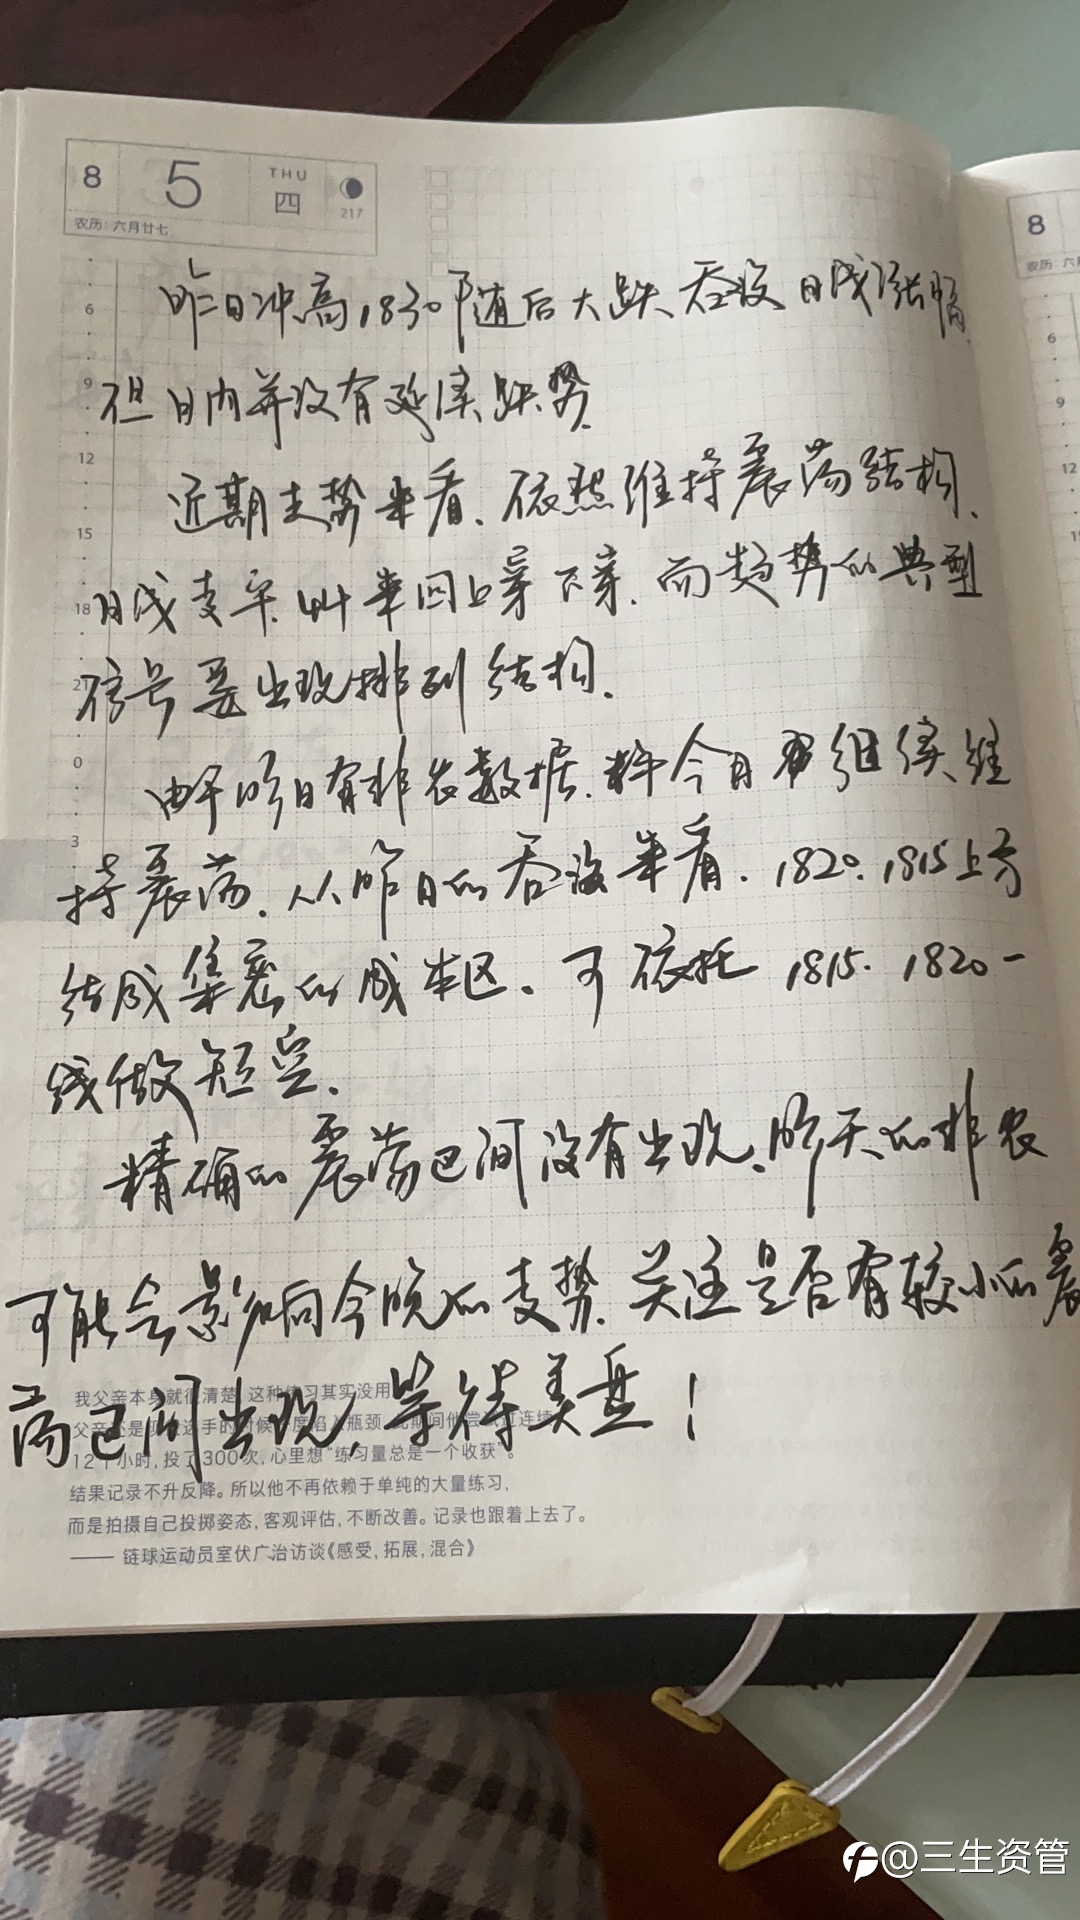 8 5 THU 四 217
农历: 六月廿七
8
农历: 六
昨日冲高1830下随后大跌 吞没日线涨幅.
但日内并没有延续跌势.
近期走势来看、依然维持震荡结构、
日线支平 来回上穿下穿、而趋势的典型
信号要出现排列结构.
由于明日有非农数据、料今日 继续维
持震荡、从昨日的吞没来看、1820、1815上方
结成集密的成本区、可依托 1815. 1820一
线做短空.
精确的震荡区间没有出现、昨天的非农
可能会影响今晚的走势、关注是否有较小的震
荡区间出现,等待美盘!
6
9
12
15
18
21
0
3
6
9
12
我父亲本身就很清楚,这种练习其实没用。
12个小时,投了300次,心里想“练习量总是一个收获”。
结果记录不升反降。所以他不再依赖于单纯的大量练习,
而是拍摄自己投掷姿态,客观评估,不断改善。记录也跟着上去了。
—— 链球运动员室伏广治访谈《感受,拓展,混合》
@三生资管